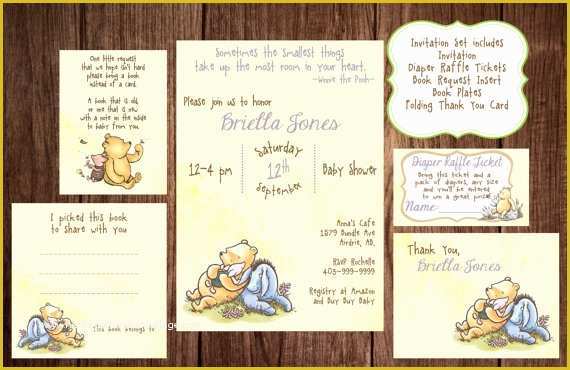 One little request
that we hope isn't hard
please bring a book
instead of a card.
A book that is old,
or one that is new
with a note on the inside
to baby from you
Sometimes the smallest things
take up the most room in your heart.
~Winnie the Pooh~
Please join us to honor
Briella Jones
12-4 pm
Saturday
12th
September
Baby Shower
Anna's Cafe
1879 Dundle Ave
Airdrie, AD,
RSVP Rochelle
403-999-9999
Registry at Amazon
and Buy Buy Baby
Invitation Set includes
Invitation
Diaper Raffle Tickets
Book Request Insert
Book Plates
Folding Thank You Card
Diaper Raffle Ticket
Bring this ticket and a
pack of diapers, any size
and you'll be entered
to win a great prize!
Name:
I picked this book
to share with you
This book belongs to
Thank You,
Briella Jones